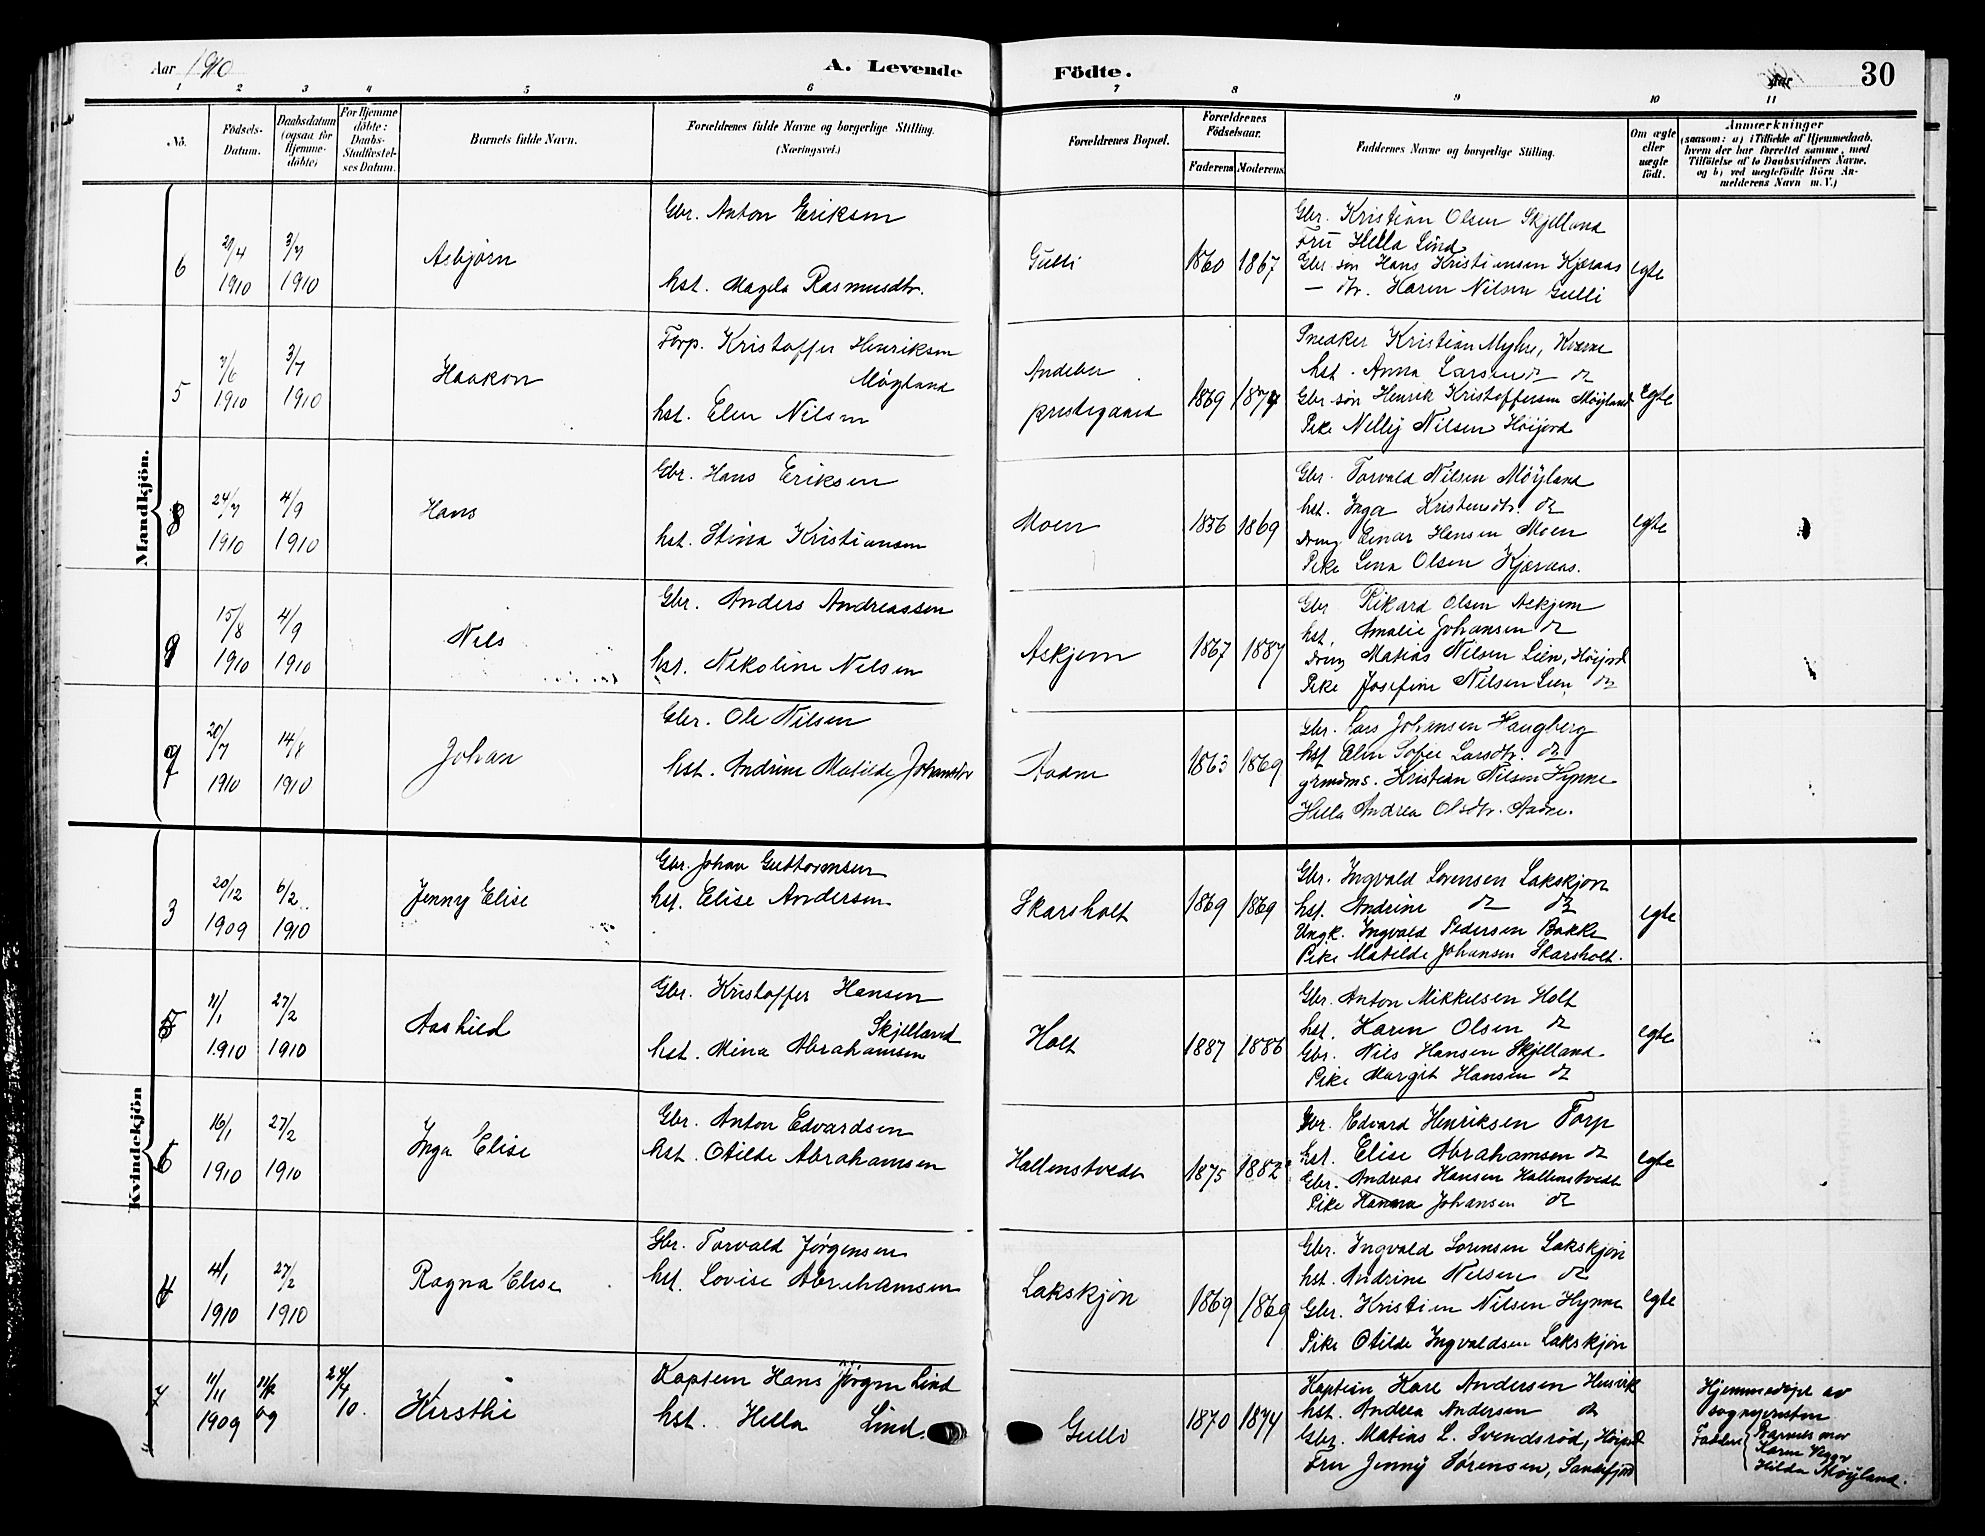 Aar 1910
A. Levende Födte.
30
1 2 3 4 5 6 7 8 9 10 11
No.
Födsels-
Datum.
Daabsdatum
(ogsaa for
Hjemme-
döbte)
For Hjemme
döbte:
Daabs-
Stadfæstel-
ses Datum.
Barnets fulde Navn.
Forældrenes fulde Navne og borgerlige Stilling.
(Næringsvei.)
Forældrenes Bopæl.
Forældrenes
Födselsaar.
Faderens Moderens
Faddernes Navne og borgerlige Stilling.
Om ægte
eller
uægte
födt.
Anmærkninger
(saasom: a) i Tilfælde af Hjemmedaab,
hvem der har forrettet samme, med
Tilföielse af to Daabsvidners Navne,
og b) ved uægtefödte Börn An-
melderens Navn m. V.)
Mandkjön.
6
21/4
1910
3/7
1910
Asbjørn
Gbr. Anton Eriksen
hst. Magela Rasmusdtr.
Gulli
1860 1867
Gbr. Kristian Olsen Skjelland
Fru Hella Lind
Gbr søn Hans Kristiansen Kjæraas
— dtr. Karen Nilsen Gulli
egte
5
7/6
1910
3/7
1910
Haakon
Forp. Kristoffer Henriksen
Møyland
hst. Elen Nilsen
Andebu
prestegaard
1869 1874
Sneaker Kristian Myhre, Kværne
hst. Anna Larsen do do
Gbr søn Henrik Kristoffersen Møyland
Pike Nelly Nilsen Höijord
egte
8
24/7
1910
4/9
1910
Hans
Gbr. Hans Eriksen
hst. Stina Kristiansen
Moen
1856 1869
Gbr. Torvald Nilsen Møyland
hst. Inga Kristensdtr. do
Dreng Einar Hansen Moen
Pike Lena Olsen Kjæraas.
egte
9
15/8
1910
4/9
1910
Nils
Gbr. Anders Andreassen
hst. Nikoline Nilsen
Askjem
1867 1887
Gbr Rikard Olsen Askjem
hst. Amalie Johansen do
Dreng Matias Nilsen Lien, Höijord
Pike Josefine Nilsen Lien do
7
20/7
1910
14/8
1910
Johan
Gbr. Ole Nilsen
hst. Andrine Matilde Johansdtr
Aadne
1863 1869
Gbr. Lars Johansen Haugberg
hst Elen Sofie Larsdtr. do
grmdms. Kristian Nilsen Hynne
Hella Andrea Olsdtr. Aadne.
Kvindekjön
3
20/12
1909
6/2
1910
Jenny Elise
Gbr. Johan Guttormsen
hst. Elise Andersen
Skarsholt
1869 1869
Gbr. Ingvald Sørensen Lakskjøn
hst. Andrine do do
Ungk. Ingvald Pedersen Bakke
Pike Matilde Johansen Skarsholt.
egte
5
11/1
1910
27/2
1910
Aashild
Gbr. Kristoffer Hansen
Skjelland
hst. Mina Abrahamsen
Holt
1887 1886
Gbr. Anton Mikkelsen Holt
hst. Karen Olsen do
Gbr. Nils Hansen Skjelland
Pike Margit Hansen do
egte
6
16/1
1910
27/2
1910
Inga Elise
Gbr. Anton Edvardsen
hst. Otilde Abrahamsen
Hallenstvedt
1875 1882
Gbr. Edvard Henriksen Torp
hst. Elise Abrahamsen do
Gbr. Andreas Hansen Hallenstvedt
Pike Hanna Johansen do
egte
4
4/1
1910
27/2
1910
Ragna Elise
Gbr. Torvald Jørgensen
hst. Lovise Abrahamsen
Lakskjøn
1869 1869
Gbr. Ingvald Sørensen Lakskjøn
hst. Andrine Nilsen do
Gbr. Kristian Nilsen Hynne
Pike Otilde Ingvaldsen Lakskjøn
egte
7
11/11
1909
09
24/4
10.
Kirsthi
Kaptein Hans Jörgen Lind
hst. Hella Lind
Gulli
1870 1874
Kaptein Karl Andersen
hst. Andrea Andersen do
Gbr. Matias L. Svendsrød, Höijord
Fru Jenny Sørensen, Sandefjord
Hjemmedöpt av
sognepresten
Faddere Barnets mor
Karen
Hilda Møyland.